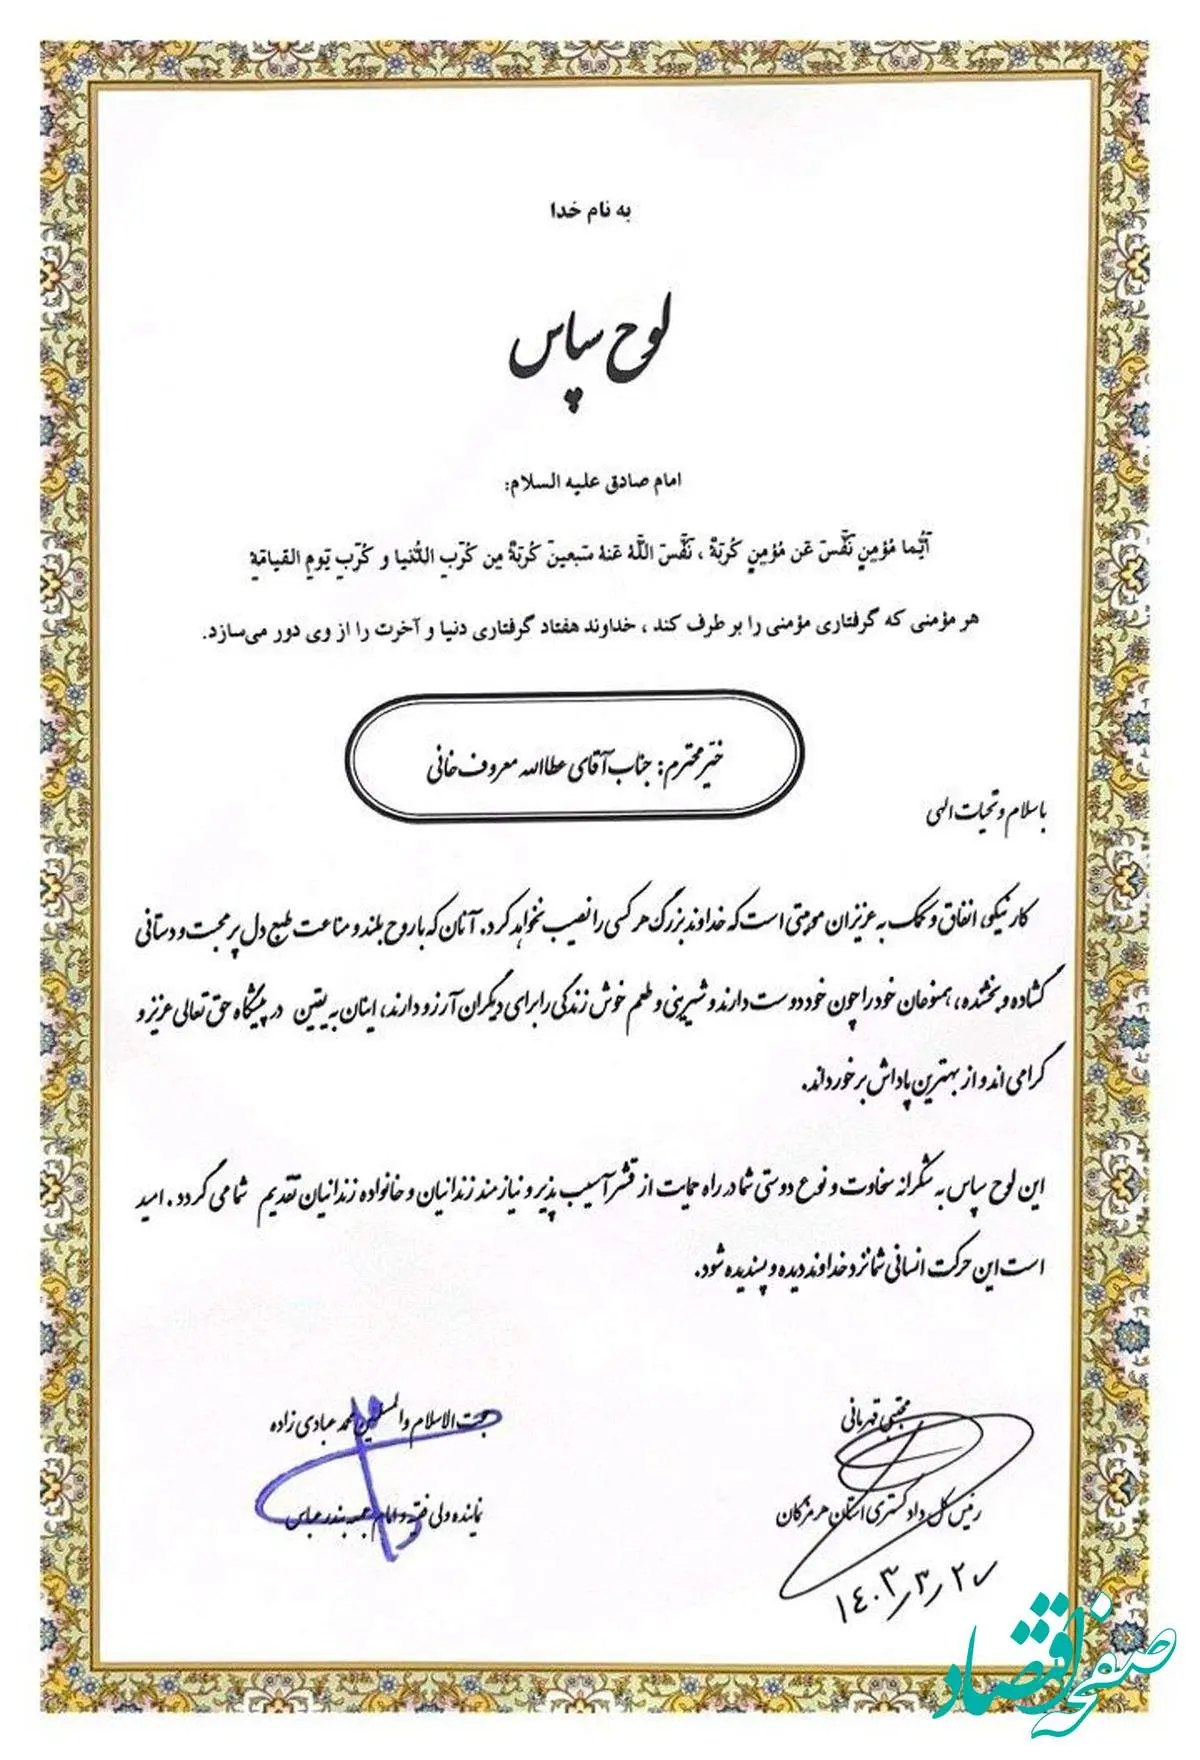 به نام خدا
لوح سپاس
امام صادق علیه السلام:
أیُّما مُؤمِنٍ نَفَّسَ عَن مُؤمِنٍ کُربَةً ، نَفَّسَ اللَّهُ عَنهُ سَبعینَ کُربَةً مِن کُرَبِ الدُّنیا و کُرَبِ یَومِ القیامَةِ
هر مؤمنی که گرفتاری مؤمنی را بر طرف کند ، خداوند هفتاد گرفتاری دنیا و آخرت را از وی دور می‌سازد.
خیّر محترم: جناب آقای عطاالله معروف خانی
با سلام و تحیات الهی
کار نیکو، انفاق و کمک به عزیزان موهبتی است که خداوند بزرگ هر کسی را نصیب نخواهد کرد. آنان که با روح بلند و مناعت طبع دل پر محبت و دستانی
گشاده و بخشنده، همنوعان خود را چون خود دوست دارند و شیرینی و طعم خوش زندگی را برای دیگران آرزو دارند، اینان به یقین در پیشگاه حق تعالی عزیز و
گرامی اند و از بهترین پاداش برخوردارند.
این لوح سپاس به شکرانه سخاوت و نوع دوستی شما در راه حمایت از قشر آسیب پذیر و نیازمند زندانیان و خانواده زندانیان تقدیم شما می گردد. امید
است این حرکت انسانی شما نزد خداوند دیده و پسندیده شود.
مجتبی قهرمانی
رئیس کل دادگستری استان هرمزگان
۱۴۰۳/۳/۲۰
حجت الاسلام والمسلمین محمد عبادی زاده
نماینده ولی فقیه و امام جمعه بندرعباس
صفحه اقتصاد